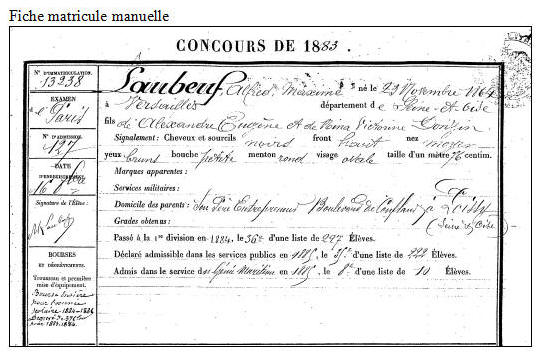 Fiche matricule manuelle
CONCOURS DE 1883.
N° D'IMMATRICULATION.
13238
EXAMEN
de Paris
N° D'ADMISSION.
127
DATE
D'ENREGISTREMENT
16
Signature de l'Élève :
BOURSES
ET DÉGRÈVEMENTS.
Trousseau et première
mise d'équipement.
Bourse entière
pour l'année
scolaire 1884-1885
Laubeuf, Alfred Maxime né le 23 Novembre 1864
à Versailles département de Seine-et-Oise
fils d'Alexandre Eugène et de Victorine
Signalement : Cheveux et sourcils noirs front haut nez moyen
yeux bruns bouche petite menton rond visage ovale taille d'un mètre 76 centim.
Marques apparentes :
Services militaires :
Domicile des parents : Son Père Entrepreneur Boulevard de à Poissy
Grades obtenus : (Seine & Oise)
Passé à la 1re division en 1884, le 36e d'une liste de 297 Élèves.
Déclaré admissible dans les services publics en 1885 d'une liste de 222 Élèves.
Admis dans le service du Génie Maritime en 1885, le d'une liste de 10 Élèves.